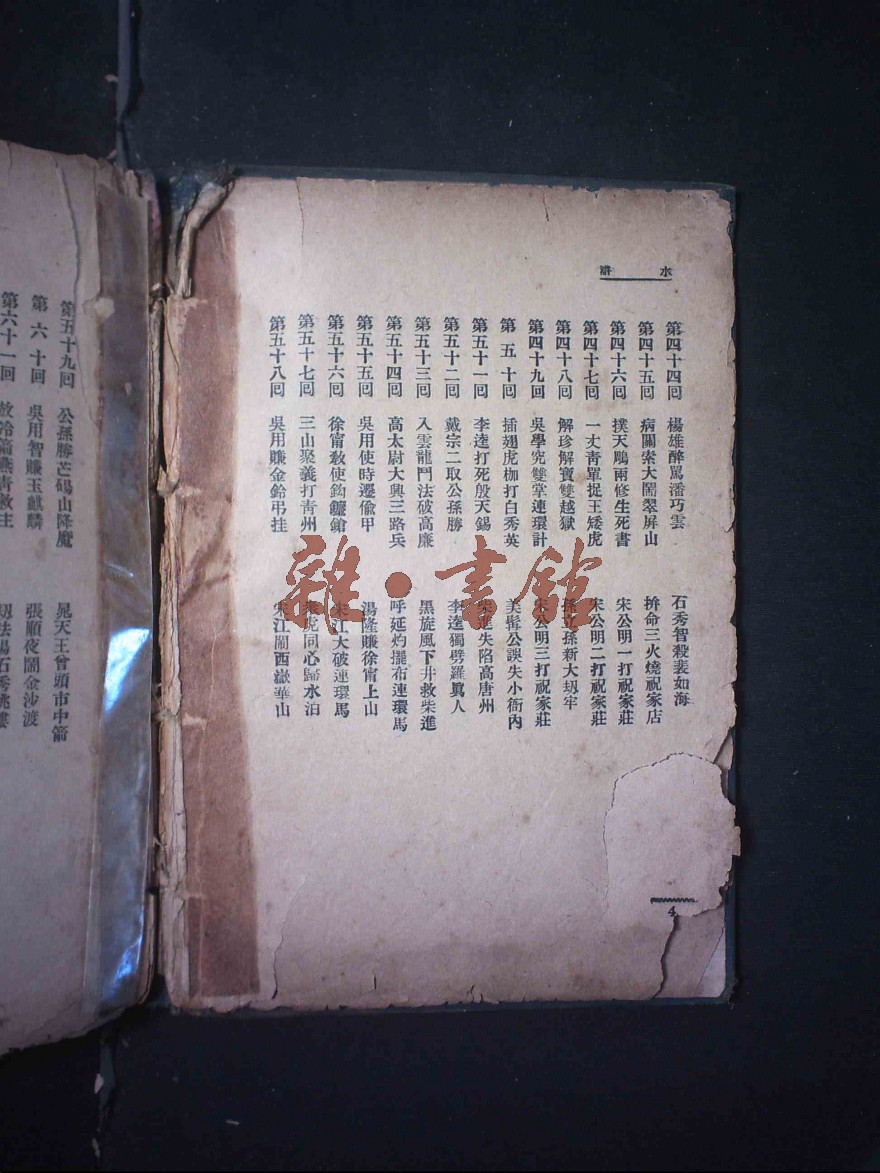 水滸
第四十四回 楊雄醉罵潘巧雲 石秀智殺裴如海
第四十五回 病關索大鬧翠屏山 拚命三火燒祝家店
第四十六回 撲天鵰兩修生死書 宋公明一打祝家莊
第四十七回 一丈青單捉王矮虎 宋公明二打祝家莊
第四十八回 解珍解寶雙越獄 孫立孫新大刼牢
第四十九回 吳學究雙掌連環計 宋公明三打祝家莊
第五十回 插翅虎枷打白秀英 美髯公誤失小衙內
第五十一回 李逵打死殷天錫 柴進失陷高唐州
第五十二回 戴宗二取公孫勝 李逵獨劈羅眞人
第五十三回 入雲龍鬥法破高廉 黑旋風下井救柴進
第五十四回 高太尉大興三路兵 呼延灼擺布連環馬
第五十五回 吳用使時遷偷甲 湯隆賺徐甯上山
第五十六回 徐甯敎使鈎鐮鎗 宋江大破連環馬
第五十七回 三山聚義打青州 衆虎同心歸水泊
第五十八回 吳用賺金鈴弔挂 宋江鬧西嶽華山
4
第五十九回 公孫勝芒碭山降魔 晁天王曾頭市中箭
第六十回 吳用智賺玉麒麟 張順夜鬧金沙渡
第六十一回 放冷箭燕青救主 刼法場石秀跳樓
雜·書館